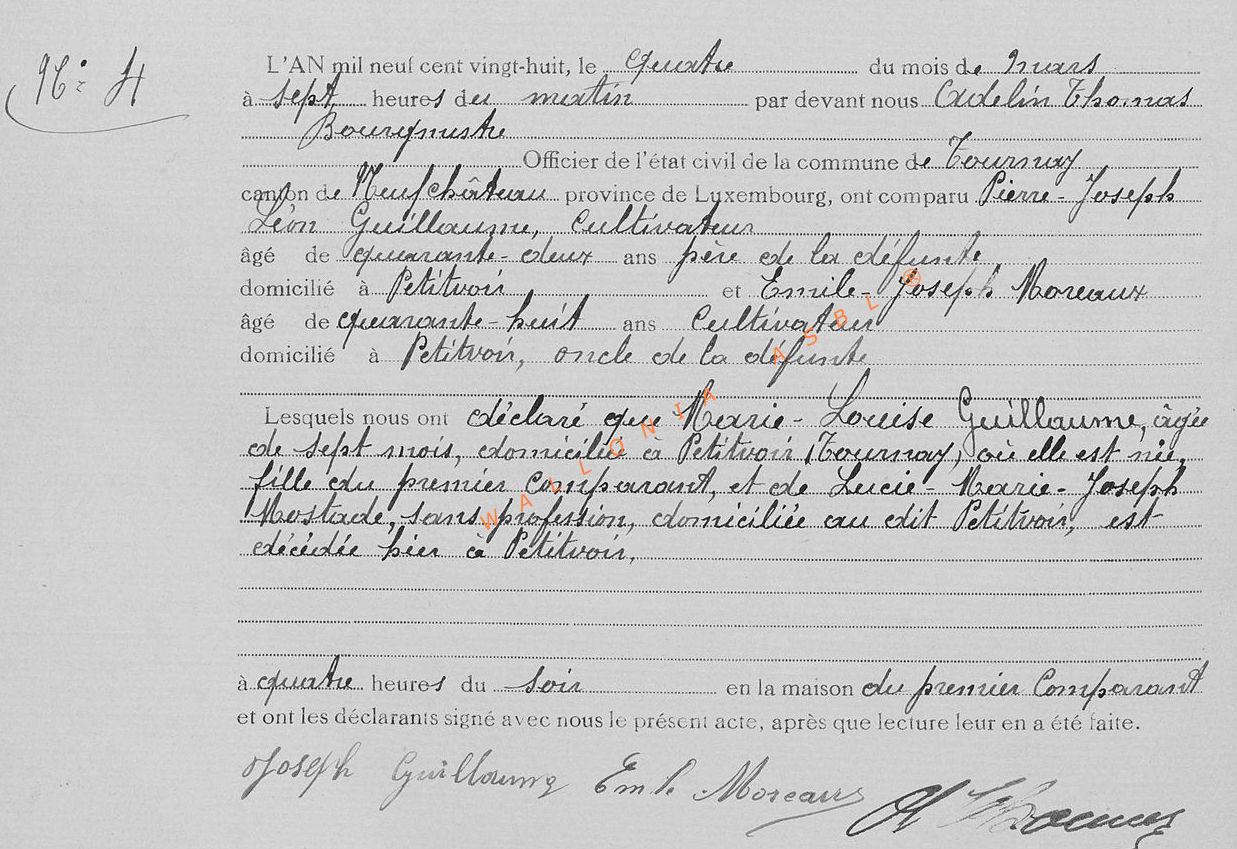 N° 4
L'AN mil neuf cent vingt-huit, le quatre du mois de mars
à sept heures du matin par devant nous Adelin Thomas
Bourgmestre
Officier de l'état civil de la commune de Tournay
canton de Neufchâteau province de Luxembourg, ont comparu Pierre-Joseph
Léon Guillaume, cultivateur
âgé de quarante-deux ans père de la défunte
domicilié à Petitvoir et Emile-Joseph Moreaux
âgé de quarante-huit ans cultivateur
domicilié à Petitvoir, oncle de la défunte
Lesquels nous ont déclaré que Marie-Louise Guillaume, âgée
de sept mois, domiciliée à Petitvoir (Tournay) où elle est née,
fille du premier comparant, et de Lucie-Marie-Joseph
Mostade, sans profession, domiciliée au dit Petitvoir, est
décédée hier à Petitvoir,
à quatre heures du soir en la maison du premier comparant
et ont les déclarants signé avec nous le présent acte, après que lecture leur en a été faite.
Joseph Guillaume Emile Moreaux A Thomas
WALLONIA ASBL ®